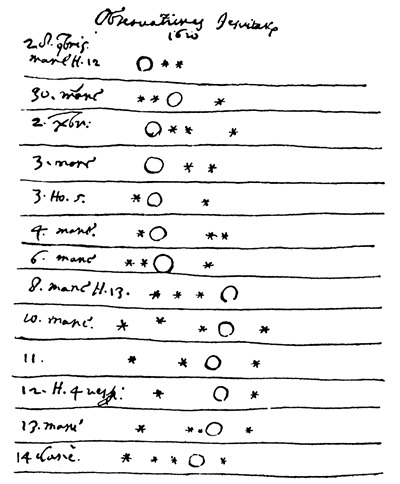 Observationes Jesuitar
1610
2. 9bris
mane H. 12
30. mane
2. Xbr:
3. mane
3. Ho. 5.
4. mane.
6. mane
8. mane H. 13.
10. mane.
11.
12. H. 4 vesp:
13. mane
14